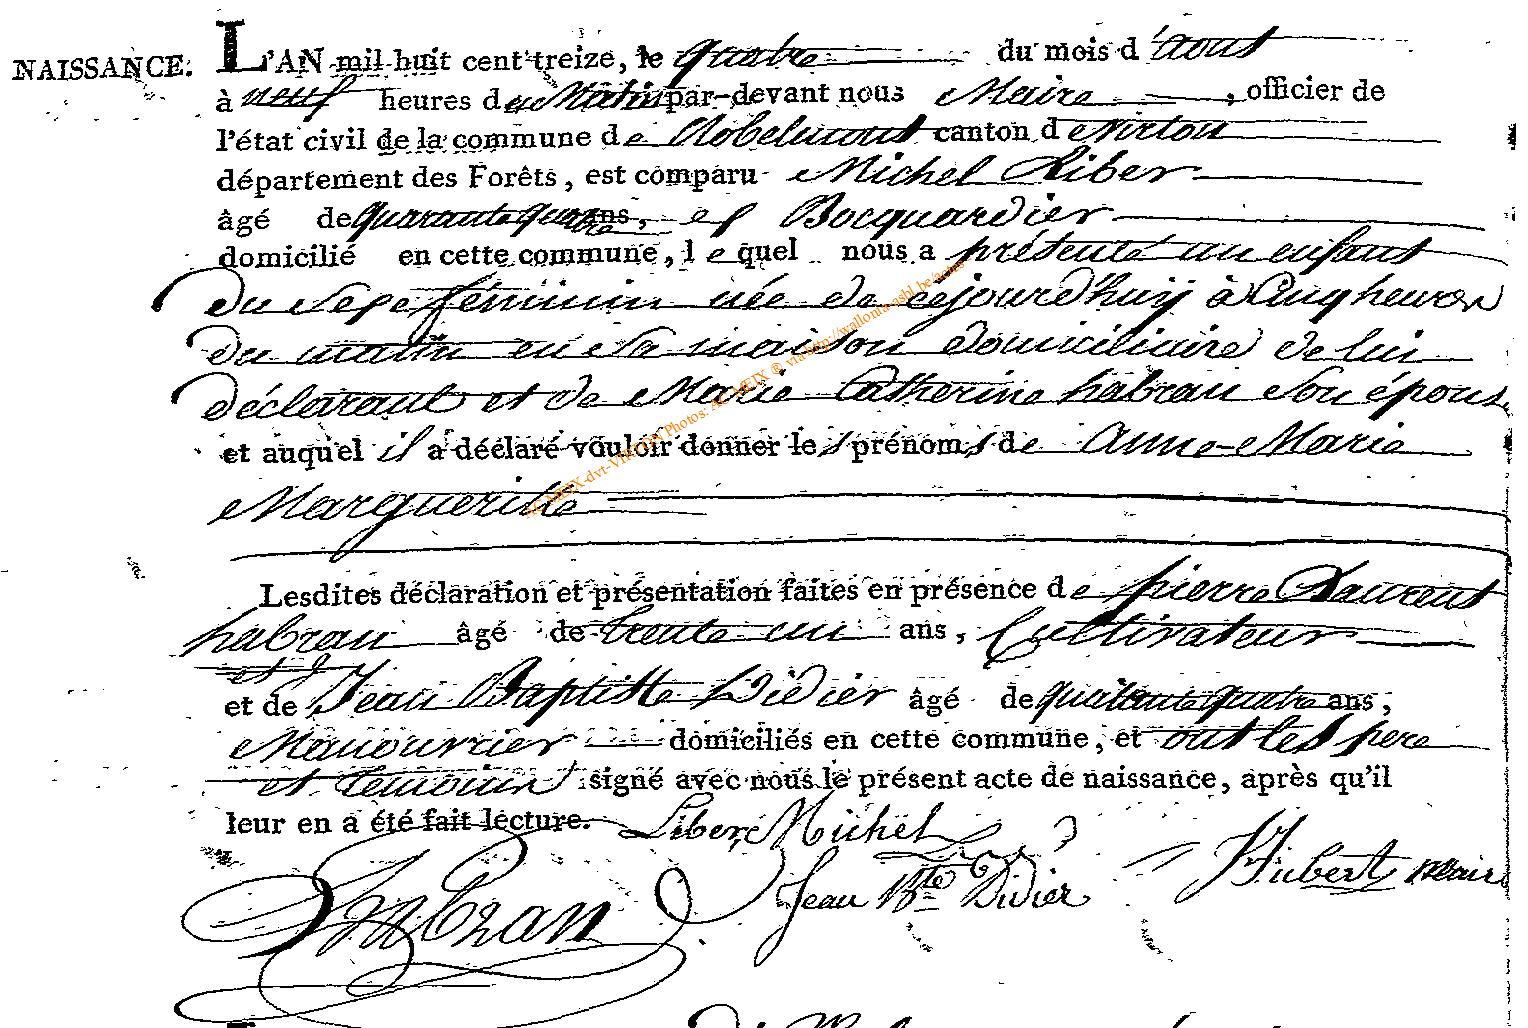 NAISSANCE. L'AN mil huit cent treize, le quatre du mois d'aout
à neuf heures du Matin par-devant nous Maire, officier de
l'état civil de la commune de Robelmont canton de Virton
département des Forêts, est comparu Michel Liber
âgé de quarante quatre ans, et Bocquardier
domicilié en cette commune, lequel nous a présenté un enfant
du sexe féminin née de cejourd'huy à Cinq heures
du matin en sa maison domiciliaire de lui
déclarant et de Marie Catherine habran son épouse
et auquel il a déclaré vouloir donner les prénoms de anne-Marie
Margueritte
Lesdites déclaration et présentation faites en présence de pierre Laurent
habran âgé de trente un ans, Cultivateur
et de Jean Baptiste Didier âgé de quarante quatre ans,
Manouvrier domiciliés en cette commune, et ont les pere
et temoins signé avec nous le présent acte de naissance, après qu'il
leur en a été fait lecture. Liber Michel
habran Jean Bte Didier Hubert maire
AC MEIX-dvt-VIRTON Photos: AC MEIX ® via http://wallonia-asbl.be/actes